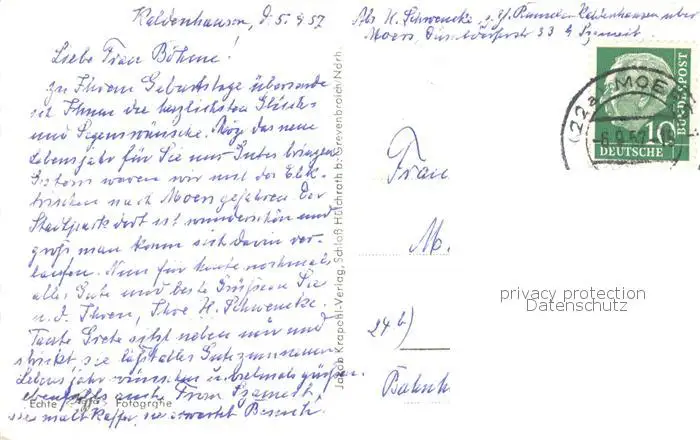 Kaldenhausen, d. 5.9.57
Liebe Frau Böhme!
Zu Ihrem Geburtstage übersende
ich Ihnen die herzlichsten Glück-
und Segenswünsche. Möge das neue
Lebensjahr für Sie nur Gutes bringen.
Gestern waren wir mit der Elek-
trischen nach Moers gefahren. Der
Stadtpark dort ist wunderschön und
groß, man kann sich darin ver-
laufen. Nun für heute nochmals
alles Gute und beste Grüße an Sie
u. d. Ihren, Ihre H. Schwencke.
Tante Grete sitzt neben mir und
strickt, sie läßt alles Gute zum neuen
Lebensjahr wünschen u. vielmals grüßen
ebenfalls auch Frau
sie malt Kaffee, sie erwartet Besuch.
Echte Fotografie
Jakob Krapohl-Verlag, Schloß Hülchrath b. Grevenbroich/Ndrh.
Abs. H. Schwencke, z. Zt. Kaldenhausen über
Moers, Düsseldorferstr. 33 b.
(22a) MOE
6.9.57
10
DEUTSCHE
BUNDESPOST
Frau
M.
24b)
Bahnh
privacy protection
Datenschutz